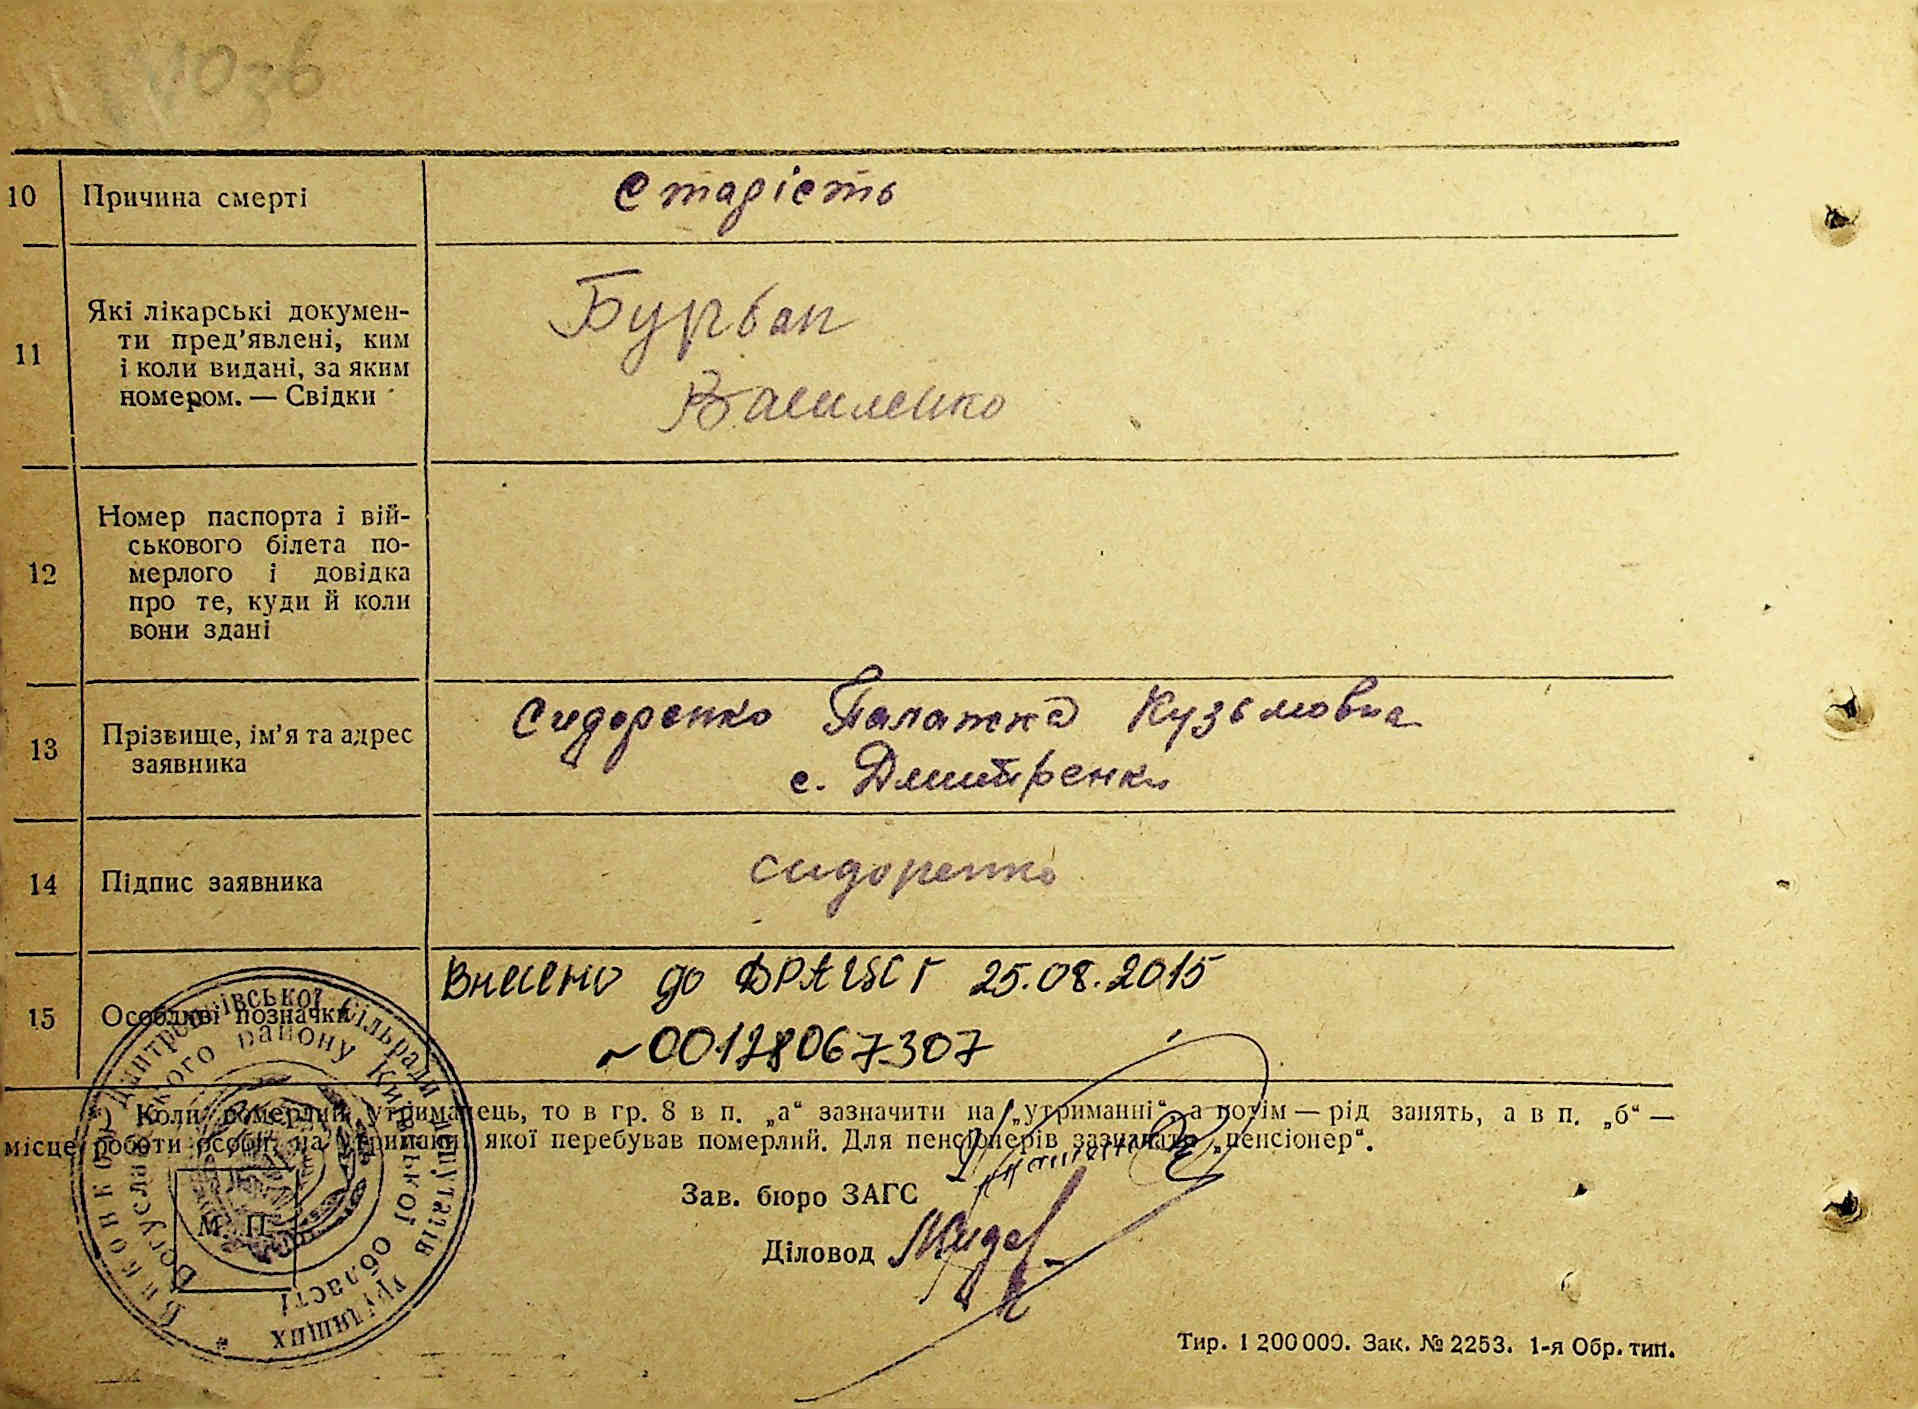 10 Причина смерті Старість
11 Які лікарські докумен-
ти пред'явлені, ким
і коли видані, за яким
номером. — Свідки
Бурбан
Василенко
12 Номер паспорта і вій-
ськового білета по-
мерлого і довідка
про те, куди й коли
вони здані
13 Прізвище, ім'я та адрес
заявника
Сидоренко Палажка Кузьмовна
с. Дмитренки
14 Підпис заявника Сидоренко
15 Особливі позначки
Внесено до ДРАЦСГ 25.08.2015
~00128067307
Коли померлий утриманець, то в гр. 8 в п. „а“ зазначити на „утриманні“, а потім — рід занять, а в п. „б“ —
місце роботи особи, на утриманні якої перебував померлий. Для пенсіонерів зазначати „пенсіонер“.
Зав. бюро ЗАГС
Діловод
М. П.
Виконком Дмитренківської сільради депутатів трудящих
Богуславського району Київської області
Тир. 1 200 000. Зак. № 2253. 1-я Обр. тип.